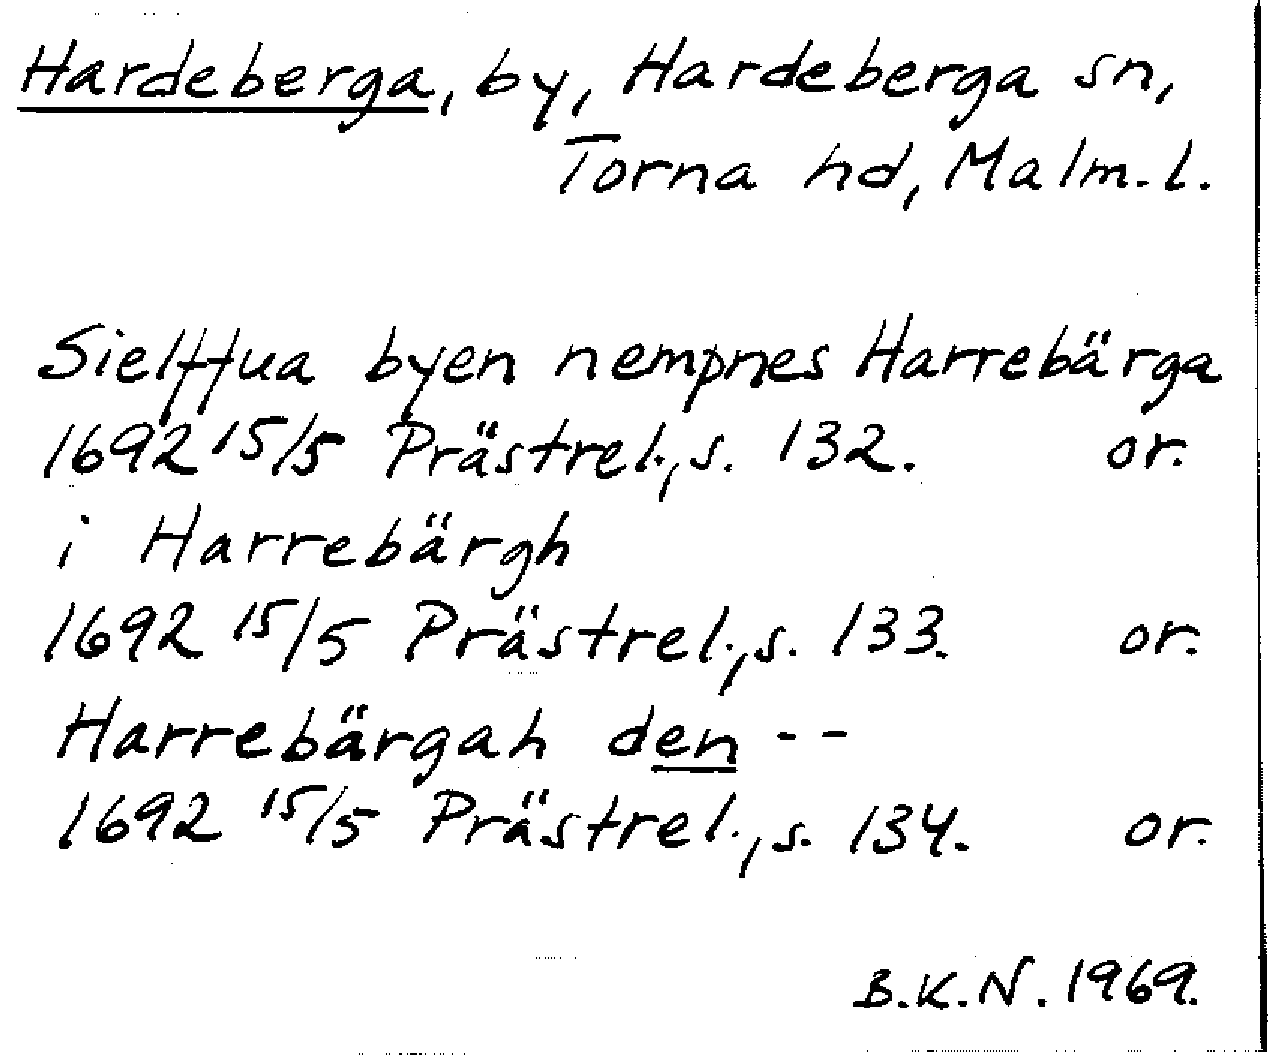 Hardeberga, by, Hardeberga sn,
Torna hd, Malm. l.
Sielffua byen nempnes Harrebärga
1692 15/5 Prästrel., s. 132. or.
i Harrebärgh
1692 15/5 Prästrel., s. 133. or.
Harrebärgah den - -
1692 15/5 Prästrel., s. 134. or.
B.K.N. 1969.